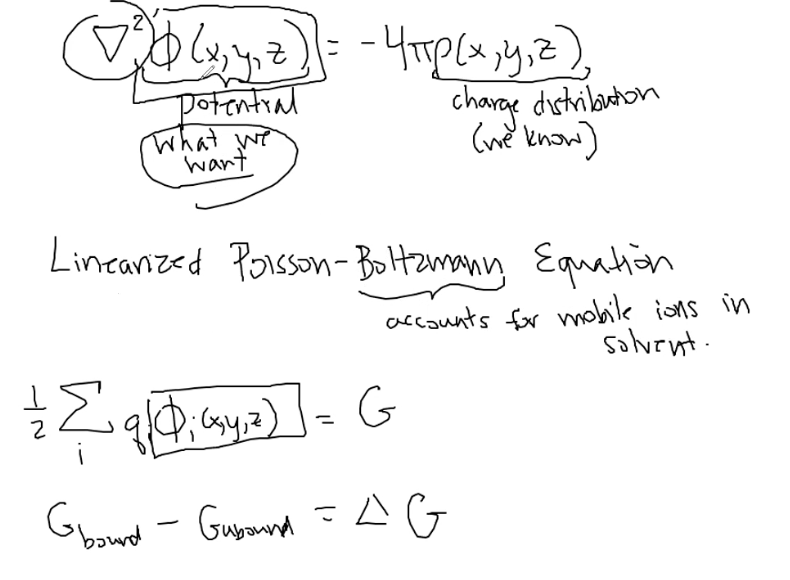 ∇² φ(x,y,z) = -4πρ(x,y,z)
potential
what we
want
charge distribution
(we know)
Linearized Poisson-Boltzmann Equation
accounts for mobile ions in
solvent.
1/2 Σ_i q_i φ_i(x,y,z) = G
G_bound - G_ubound = ΔG